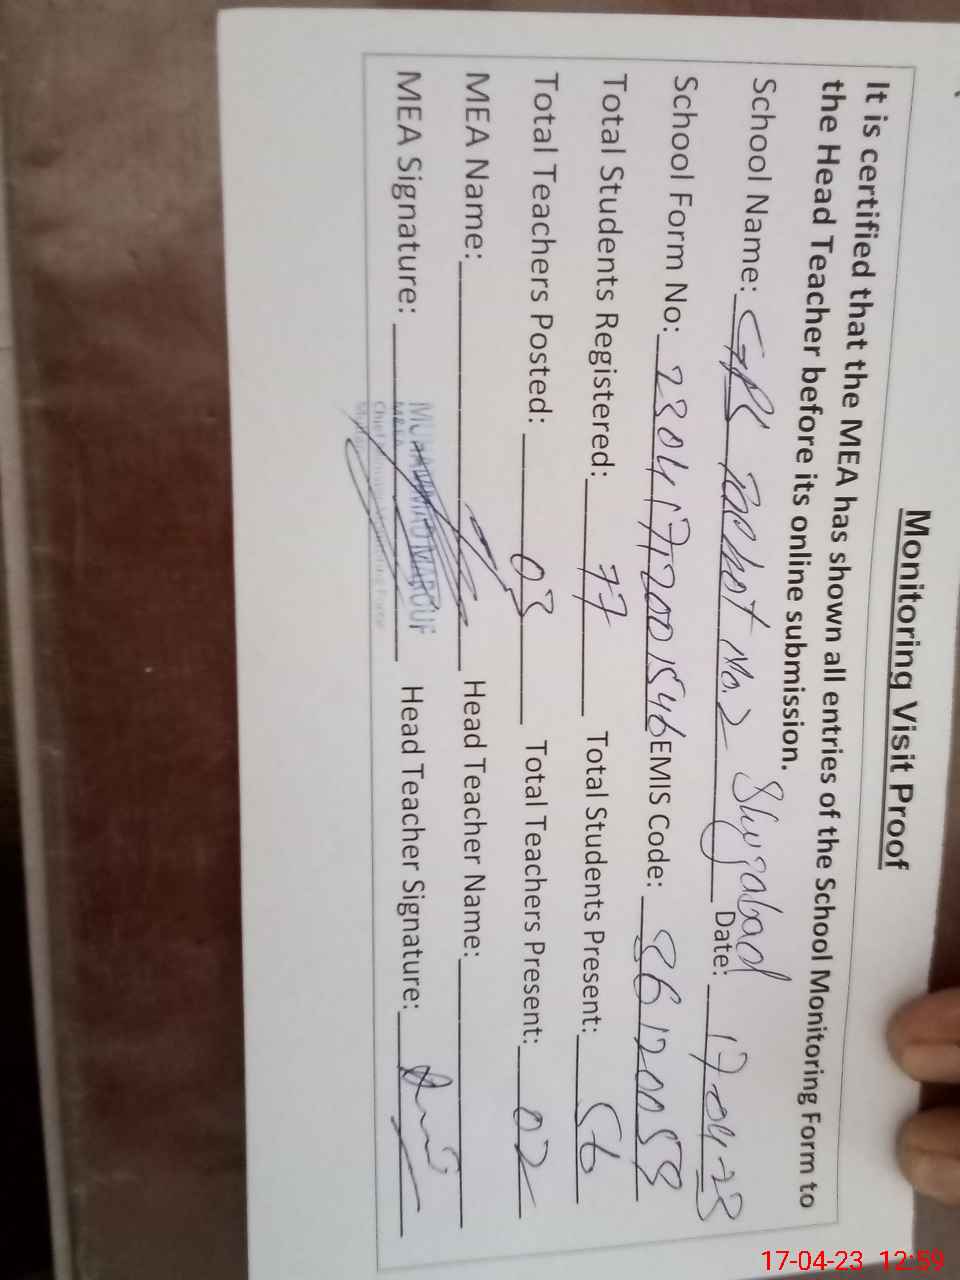 Monitoring Visit Proof
It is certified that the MEA has shown all entries of the School Monitoring Form to
the Head Teacher before its online submission.
School Name: GPS No.2 Shujabad Date: 17-04-23
School Form No: 23041712001546 EMIS Code: 36120058
Total Students Registered: 77 Total Students Present: 56
Total Teachers Posted: 03 Total Teachers Present: 02
MEA Name: Head Teacher Name:
MUHAMMAD MAROUF
MEA Signature: Head Teacher Signature:
17-04-23 12:59